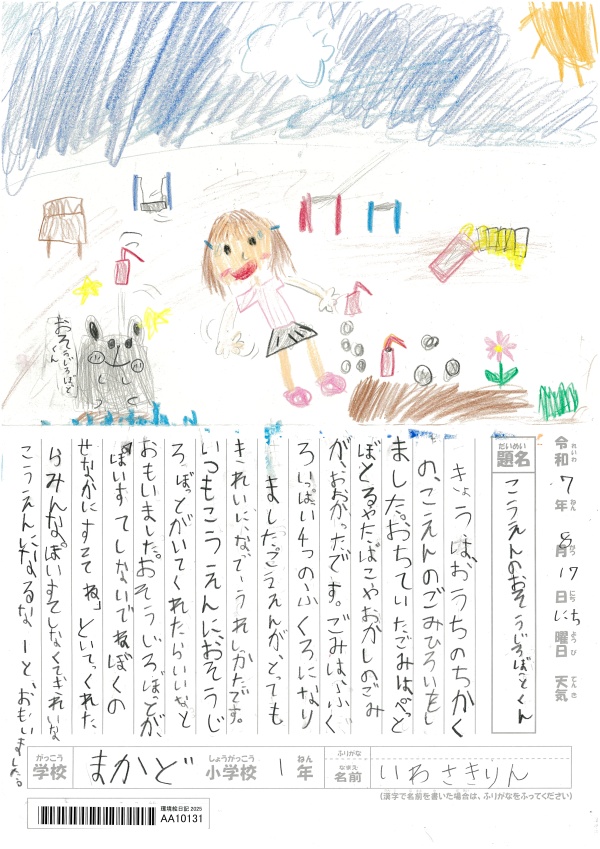 おそうじろぼっとくん
令和 れいわ 7 年 ねん 8 月 がつ 17 日 にち にち 曜日 ようび 天気 てんき
題名 だいめい
こうえんのおそうじろぼっとくん
きょうは、おうちのちかく
の、こえんのごみひろいをし
ました。おちていたごみは、ぺっと
ぼとるやたばこや、おかしのごみ
が、おおがったです。ごみは、ふくろ
いっぱい4つのふくろになり
ました。こうえんが、とっても
きれいに、なて、うれしかたです。
いつもこうえんに、おそうじ
ろぼっとがいてくれたらいいなと
おもいました。おそうじろぼっとが、
「ぽいすてしないでね。ぼくの
せなかにすててね」といってくれた
らみんな、ぽいすてしなくてきれいな
こうえんに、なるなーと、おもいました。
学校 がっこう まかど 小学校 しょうがっこう 1 年 ねん
ふりがな
名前 なまえ いわさきりん
(漢字で名前を書いた場合は、ふりがなをふってください)
環境絵日記 2025
AA10131